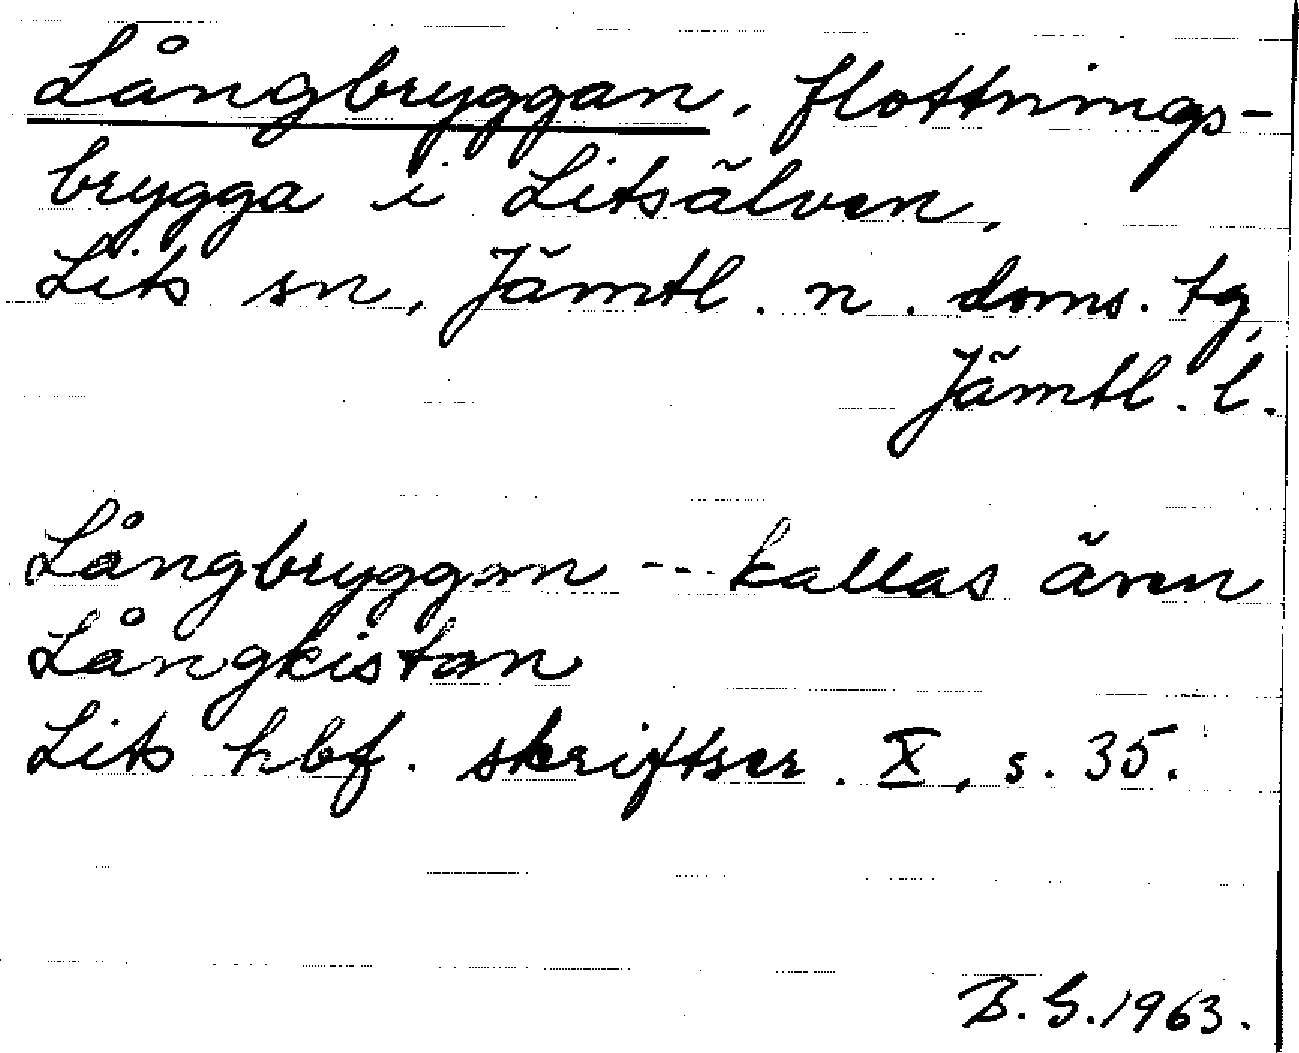 Långbryggan, flottnings-
brygga i Litsälven,
Lits sn, Jämtl. n. doms. tg,
Jämtl. l.
Långbryggan --- kallas även
Långkistan
Lits hbf. skriftser. X, s. 35.
B. G. 1963.